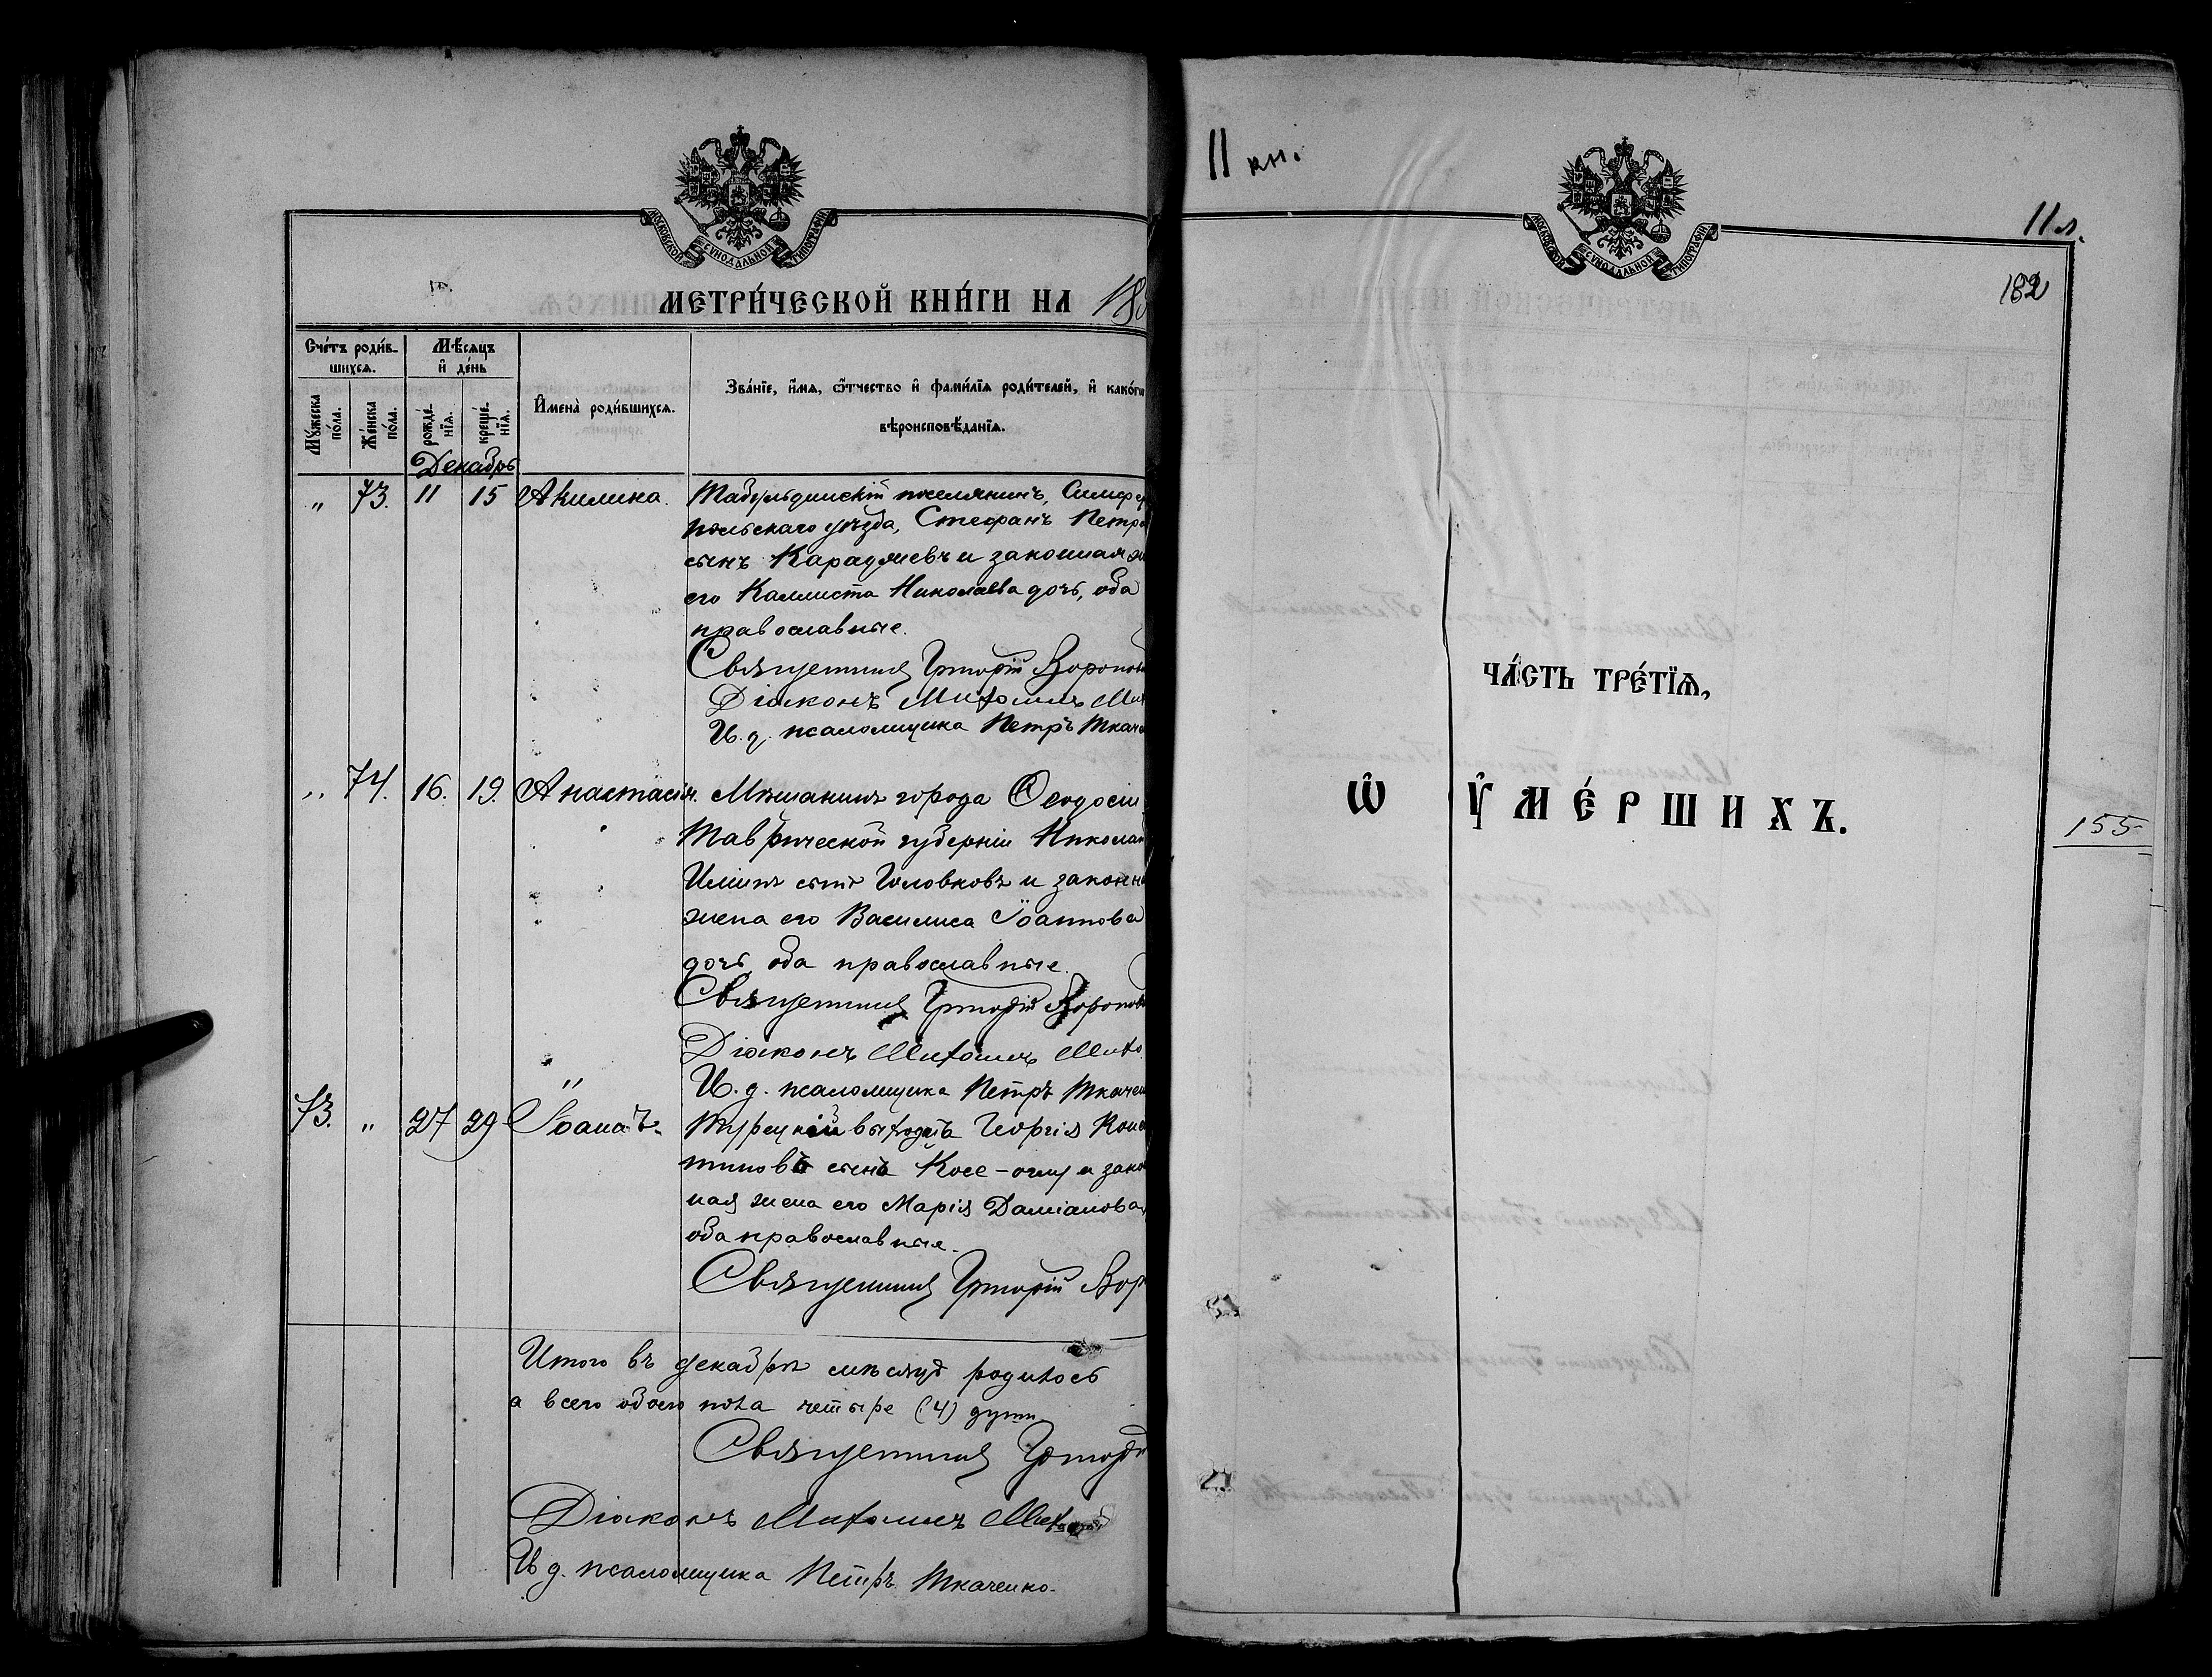 МОСКОВСКОЙ СУНОДАЛЬНОЙ ТИПОГРАФІИ
МЕТРИ́ЧЕСКОЙ КНИ́ГИ НА 188
Сче́тъ роди́в-
шихсѧ.
Мѣ́сѧцъ
и҆ де́нь
Му́жеска
по́ла.
Же́нска
по́ла.
рожде́-
нїѧ.
креще́-
нїѧ.
И҆мена̀ роди́вшихсѧ.
Зва́нїе, и҆́мѧ, ѻ҆́тчество и҆ фами́лїѧ роди́телей, и҆ како́гѡ
вѣроисповѣ́данїѧ.
Декабрь
" 73. 11 15 Акилина. Табульдинскій поселянинъ, Симферо
польскаго уѣзда, Стефанъ Петро
сынъ и законная же
его Каллиста Николаева дочь, оба
православные.
Священникъ Григорій
Діаконъ
И. д. псаломщика Петръ Ткаче
" 74. 16. 19. Анастасія. Мѣщанинъ города Ѳеодосіи
Таврической губерніи Николай
Иліинъ сынъ Головковъ и законна
жена его Василиса Іоаннова
дочь, оба православные.
Священникъ Григорій
Діаконъ
И. д. псаломщика Петръ Ткачен
"
73. " 27 29 Іоаннъ. Турецкій выходецъ Георгій Конста
тиновъ сынъ Косе-оглу и зако
ная жена его Марія Даміанова,
оба православные.
Священникъ Григорій
Итого въ декабрѣ мѣсяцѣ родилось
а всего обоего пола четыре (4) души
Священникъ Григорій
Діаконъ
И д. псаломщика Петръ Ткаченко.
11 кн.
МОСКОВСКОЙ СУНОДАЛЬНОЙ ТИПОГРАФІИ
11 л.
182
ЧА́СТЬ ТРЕ́ТЇѦ,
Ѡ҆ ОУ҆МЕ́РШИХЪ.
155